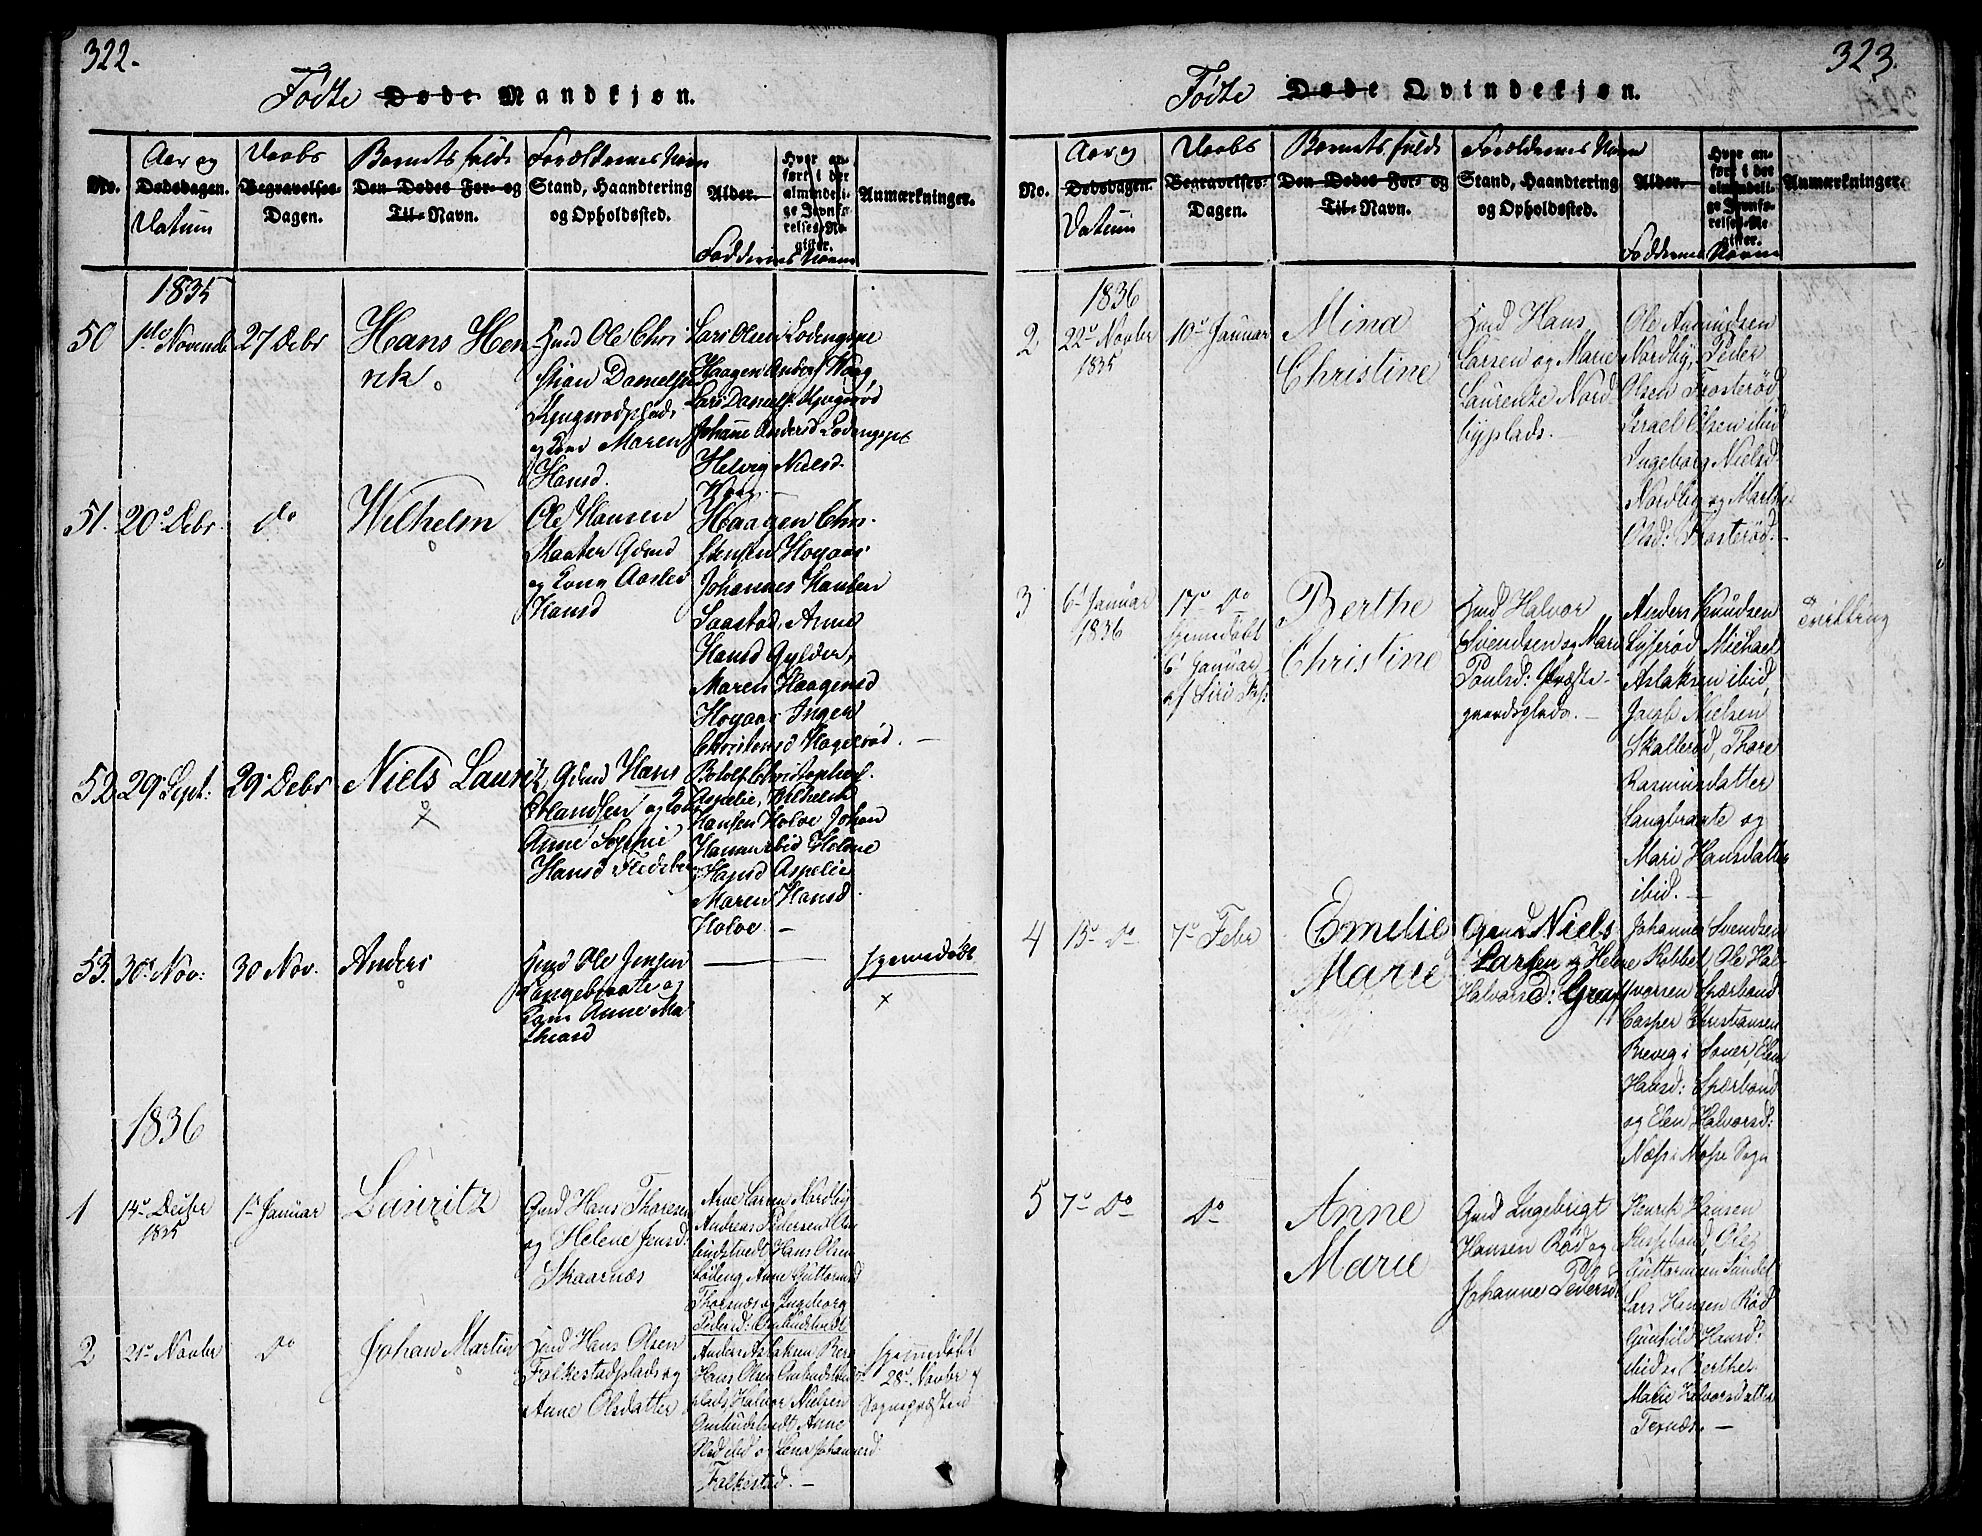 322.
Födte Døde Mandkjøn.
No.
Aar og
Dødsdagen.
Datum
Daabs
Begravelses-
Dagen.
Barnets fulde
Den Dødes For- og
Til-Navn.
Forældrenes Navn
Stand, Haandtering
og Opholdssted.
Alder.
Hvor an-
ført i det
almindeli-
ge Jevnfø-
relses-Re-
gister.
Faddernes Navne
Anmærkninger.
1835
50
1ste Novembr
27 Debr
Hans Hen
rik
Hmd Ole Chri
stian Danielsen
og Kone Maren
Hansd.
Lars Olsen Lodengspe
Lars Daniels. Kjugerød
Johanne Andersd Lodengspl
Helvig Nielsd.
51.
20de Debr.
do
Wilhelm
Ole Hansen
og Kone
Hansd
Haagen Chri
stensen Hogaas
Johannes Hansen
Saastad, Anne
Hansd Gylder,
Maren Haagensd
Hogaas Inger
Christensd Hagerød. —
52
29 Sept:
29 Debr
Niels Lauritz
x
Gdmd Hans
Erlandsen og Kone
Anne Sophie
Hansd Flødeberg
Botolf Christophers.
Aspelie, Wilhelm
Hansen Holoe Johan
Hansen ibid Helene
Hansd Aspelie
Maren Hansd.
Holoe —
53.
30te Nov:
30 Nov.
Anders
Hmd Ole Jensen
Langebraate og
Kone Anne Ma
thiasd
hjemmedøbt
x
1836
1
14de Decbr
1835
1ste Januar
Lauritz
Gmd Hans Thoresen
og Helene Jensd:
Skaarnæs
Arne Larsen Nordby
Andreas Pedersen Om
budstvedt Hans Olsen
Lødeng, Anne Guttormsd
Thorsnæs og Ingeborg
Pedersd: Ombudstvedt
2
21de Novbr
do
Johan Martin
Hmd Hans Olsen
Falkestadplads og
Anne Olsdatter
Anders Aslaksen Berg
Hans Olsen Ombudstvedt
plads, Halvor Nielsen
Ombudstvedt, Anne
Olsd ibid og Lene Johannesd
Falkestad. —
hjemmedøbt
28de Novbr af
Sognepræsten
323.
Födte Døde Qvindekjøn.
No.
Aar og
Dødsdagen.
Datum
Daabs
Begravelses-
Dagen.
Barnets fulde
Den Dødes For- og
Til-Navn.
Forældrenes Navn
Stand, Haandtering
og Opholdssted.
Alder.
Hvor an-
ført i det
almindeli-
ge Jevnfø-
relses-Re-
gister.
Faddernes Navne
Anmærkninger.
1836
2
22de Novbr
1835
10de Januar
Mina
Christine
Hmd Hans
Larsen og Marie
Laurentze Nord
byplads.
Ole Asmundsen
Nordby, Peder
Olsen Trosterød
Israel Olsen ibid
Ingeborg Nielsd
Nordby og Marthe
Olsd: Trosterød. —
3
6te Januar
1836
17de do
hjemmedøbt
6te Januar
af Siri
Berthe
Christine
Hmd Halvor
Svendsen og Mari
Poulsd: Præste-
gaardsplads. —
Anders Knudsen
Lysserød Michael
Aslaksen ibid,
Jacob Nielsen
Skallerød, Thore
Rasmusdatter
Langbraate og
Mari Hansdatter
ibid. —
Tvilling
4
15de do
7de Febr
Emelie
Marie
Gmd Niels
Larsen og Helene
Halvorsd: Greff
Johannes Svendsen
Kobbel, Ole Hal
vorsen Spærbond
Casper Christiansen
Brevig i Soner, Elen
Hansd: Spærbond
og Elen Halvorsd:
Næss i Mosse Sogn
5
7de do
do
Anne
Marie
Gmd Ingebrigt
Hansen Rød og
Johanne Pedersd
Henrik Hansen
Ole
Guttormsen Sundet
Lars Hansen Rød
Gunhild Hansd:
ibid og Berthe
Marie Halvorsdatter
Ternæs —